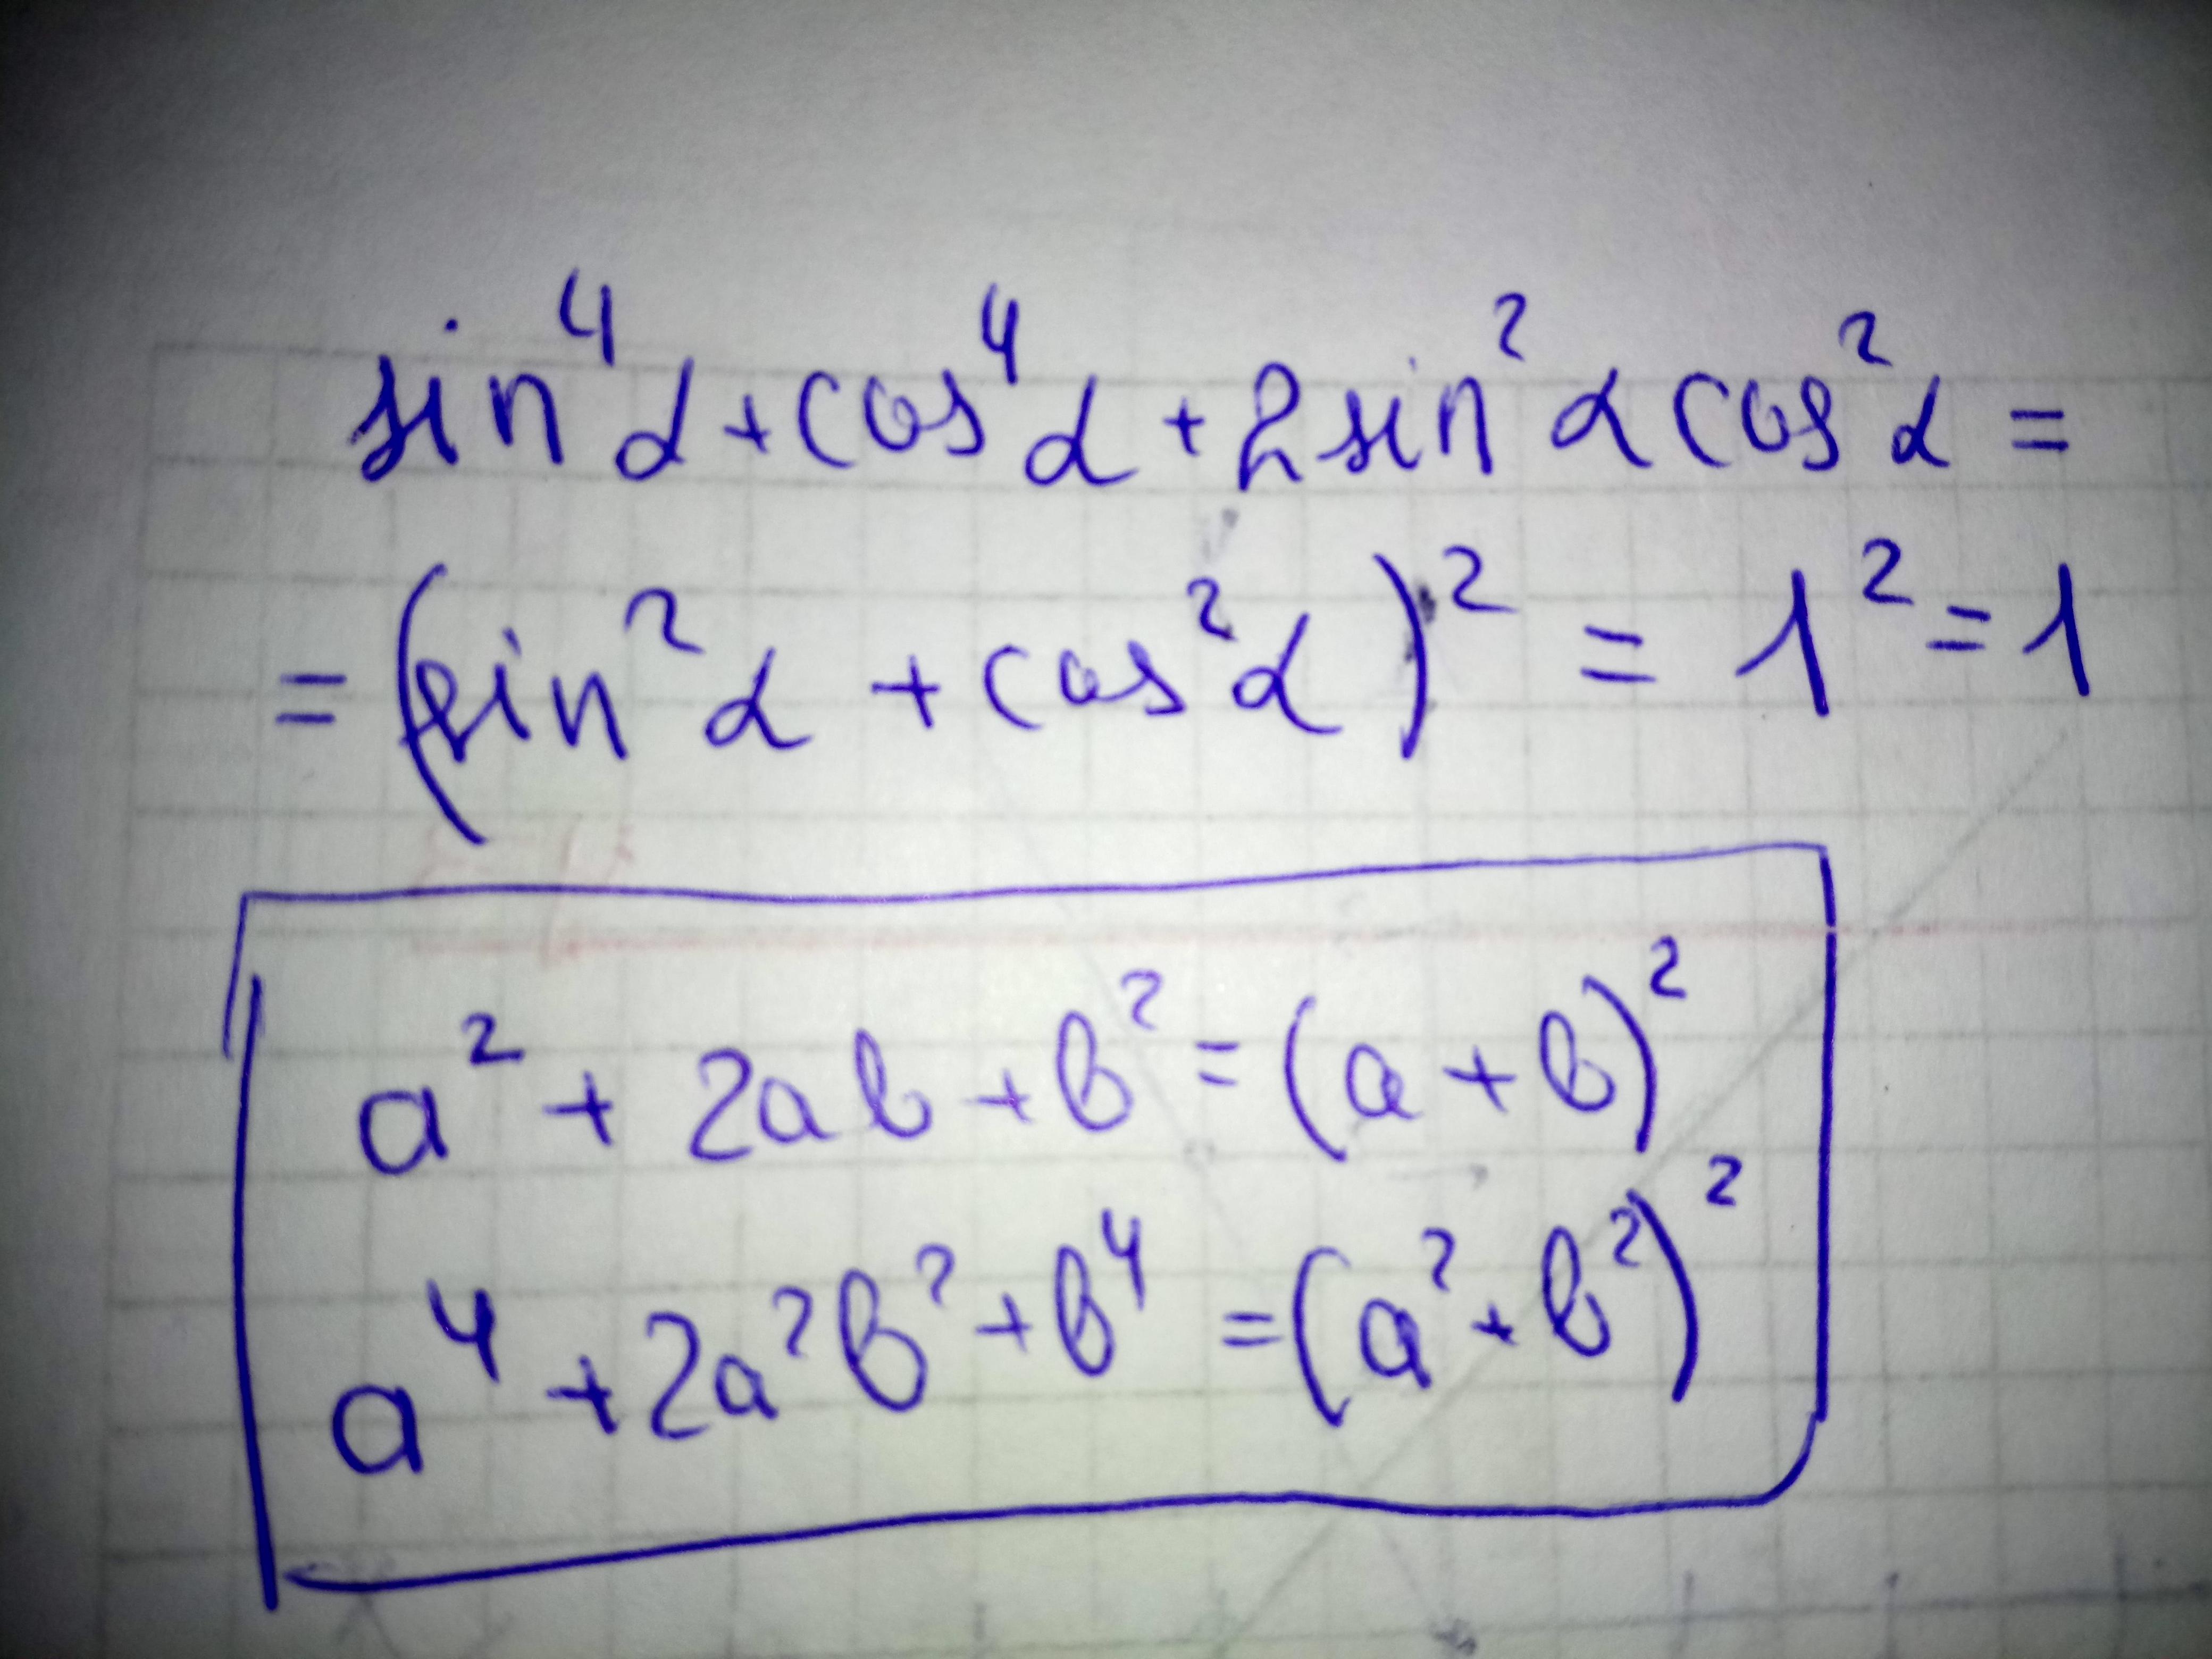 sin⁴α + cos⁴α + 2sin²α cos²α =
= (sin²α + cos²α)² = 1² = 1
a² + 2ab + b² = (a + b)²
a⁴ + 2a²b² + b⁴ = (a² + b²)²